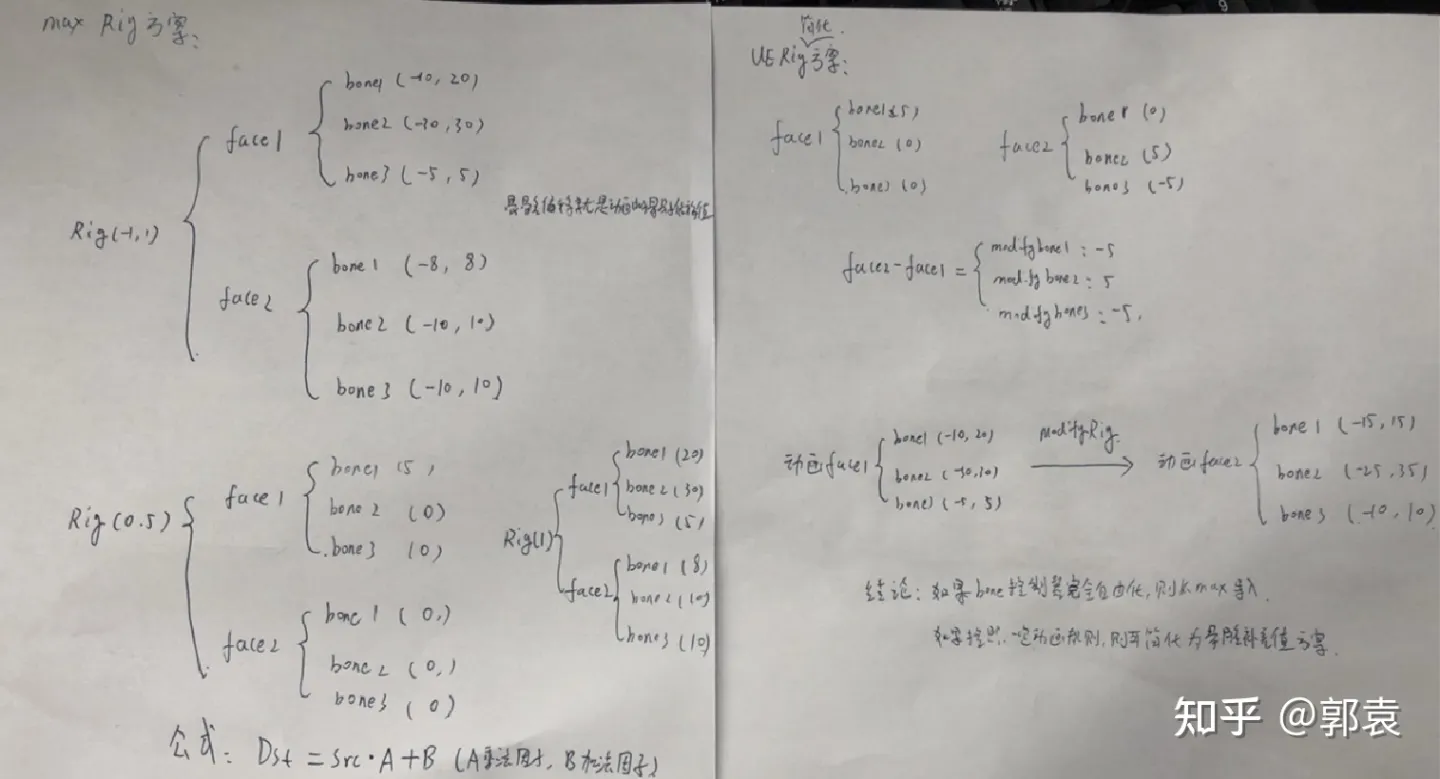 max Rig方案:
Rig(-1,1)
face1
bone1 (-10, 20)
bone2 (-30,30)
bone3 (-5, 5)
face2
bone1 (-8, 8)
bone2 (-10, 10)
bone3 (-10, 10)
Rig(0.5)
face1
bone1 (5)
bone2 (0)
bone3 (0)
face2
bone 1 (0,)
bone2 (0,)
bone3 (0)
Rig(1)
face1
bone1 (20)
bone2 (30)
bone3 (5)
face2
bone1 (8)
bone2 (10)
bone3 (10)
公式: Dst = Src·A+B (A乘法因子, B加法因子)
简化.
UE Rig方案:
face1
bone1 (5)
bone2 (0)
bone3 (0)
face2
bone1 (0)
bone2 (5)
bone3 (-5)
face2-face1 =
modifybone1: -5
modifybone2: 5
modifybone3: -5.
动画face1
bone1 (-10, 20)
bone2 (-30,30)
bone3 (-5, 5)
modifyRig.
动画face2
bone 1 (-15, 15)
bone2 (-25, 35)
bone3 (-10, 10)
结论: 如果bone控制器完全自由化, 则从max导入.
动画规则, 则可简化为骨骼补差值方案.
知乎 @郭袁